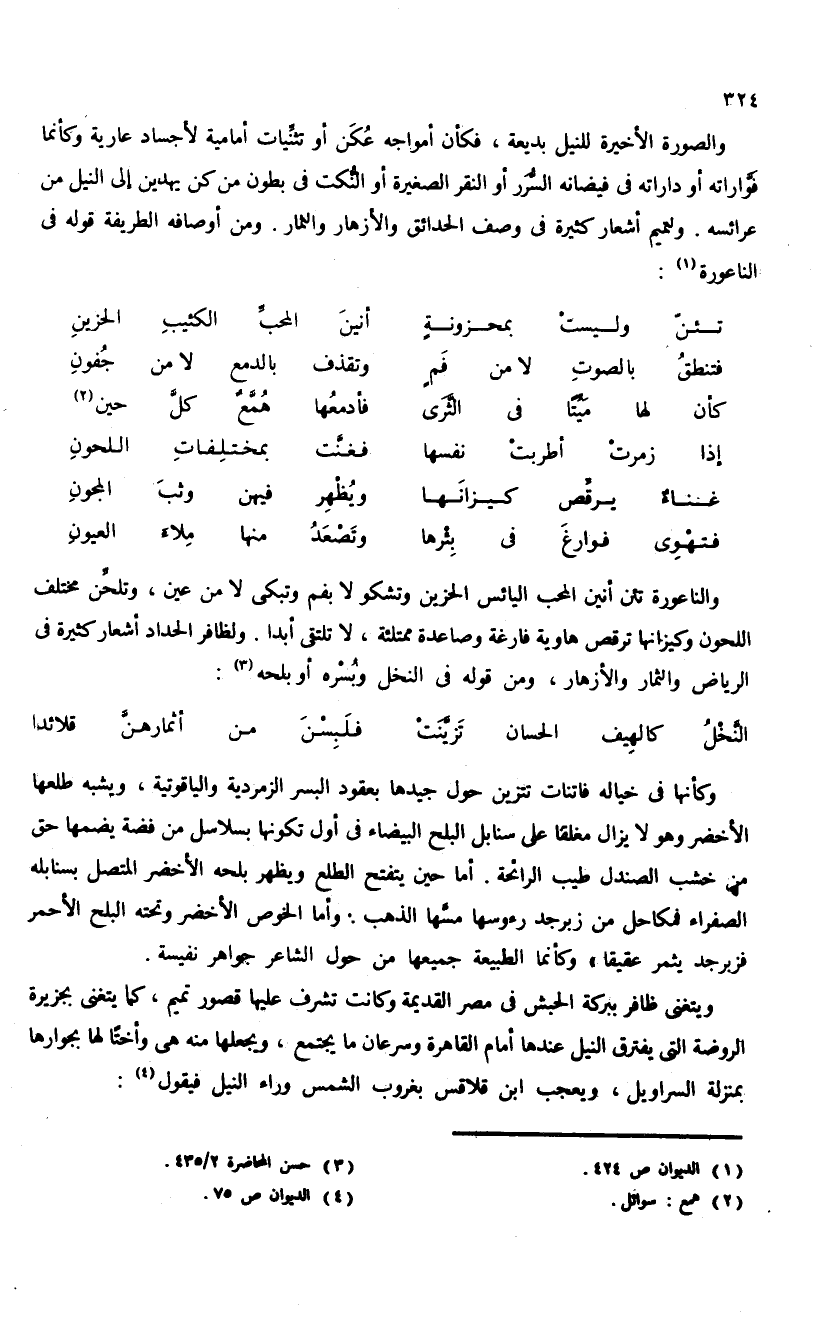 ٣٢٤
والصورة الأخيرة للنيل بديعة ، فكأن أمواجه عُكَن أو تثنِّيات أمامية لأجساد عارية وكأنما
فَوَّاراته أو داراته فى فيضانه السُّرَر أو النقر الصغيرة أو النُّكت فى بطون من كن يهدين إلى النيل من
عرائسه . ولتميم أشعار كثيرة فى وصف الحدائق والأزهار والثمار . ومن أوصافه الطريفة قوله فى
الناعورة(١) :
تــئنّ ولــيستْ بمحــزونــةٍ أنينَ المحبِّ الكئيبِ الحزينِ
فتنطقُ بالصوتِ لا من فَمٍ وتقذف بالدمع لا من جُفونِ
كأن لها مَيِّتًا فى الثَّرَى فأدمعُها هُمَّعٌ كلَّ حين(٢)
إذا زمرتْ أطربتْ نفسها فـغنَّت بمخـتـلِـفـاتِ اللـحونِ
غـنـاءً يـرقِّص كـيـزانَـهـا ويُظْهِر فيهن وثبَ المجونِ
فـتـهْوِى فـوارغَ فى بِئْرها وتَصْعَدُ منها مِلاءَ العيونِ
والناعورة تئن أنين المحب اليائس الحزين وتشكو لا بفم وتبكى لا من عين ، وتلحِّن مختلف
اللحون وكيزانها ترقص هاوية فارغة وصاعدة ممتلئة ، لا تلتقى أبدا . ولظافر الحداد أشعار كثيرة فى
الرياض والثمار والأزهار ، ومن قوله فى النخل وبُسْره أو بلحه(٣) :
النَّخْلُ كالهِيف الحسان تَزَيَّنَتْ فـلَـبِـسْـنَ مـن أثمارهـنَّ قلائدا
وكأنها فى خياله فاتنات تتزين حول جيدها بعقود البسر الزمردية والياقوتية ، ويشبه طلعها
الأخضر وهو لا يزال مغلقا على سنابل البلح البيضاء فى أول تكونها بسلاسل من فضة يضمها حق
من خشب الصندل طيب الرائحة . أما حين يتفتح الطلع ويظهر بلحه الأخضر المتصل بسنابله
الصفراء فمكاحل من زبرجد رءوسها مسَّها الذهب . وأما الخوص الأخضر وتحته البلح الأحمر
فزبرجد يثمر عقيقا ، وكأنما الطبيعة جميعها من حول الشاعر جواهر نفيسة .
ويتغنى ظافر ببركة الحبش فى مصر القديمة وكانت تشرف عليها قصور تميم ، كما يتغنى بجزيرة
الروضة التى يفترق النيل عندها أمام القاهرة وسرعان ما يجتمع ، ويجعلها منه هى وأختًا لها بجوارها
بمنزلة السراويل ، ويعجب ابن قلاقس بغروب الشمس وراء النيل فيقول(٤) :
(١) الديوان ص ٤٢٤ .
(٢) همع : سوائل .
(٣) حسن المحاضرة ٤٣٥/٢ .
(٤) الديوان ص ٧٥ .